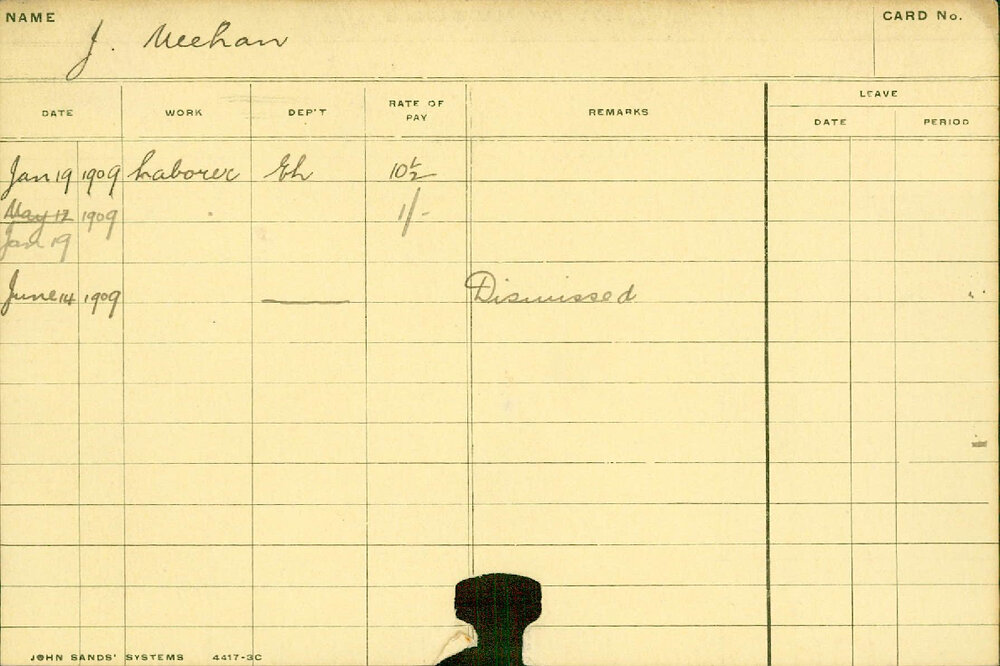 NAME J. Meehan CARD No.
DATE WORK DEP'T RATE OF PAY REMARKS LEAVE
DATE PERIOD
Jan 19 1909 Laborer Eh 10½
May 12 1909 1/-
Jan 19
June 14 1909 Dismissed
JOHN SANDS' SYSTEMS 4417-3C